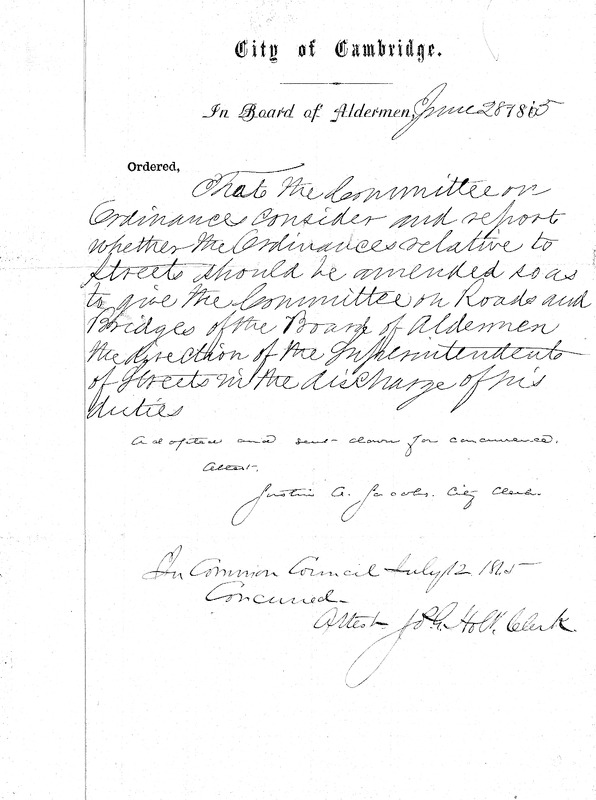 City of Cambridge.
In Board of Aldermen, June 28 1865
Ordered,
That the Committee on
Ordinances consider and report
whether the Ordinances relative to
Streets should be amended so as
to give the Committee on Roads and
Bridges of the Board of Aldermen
the direction of the Superintendents
of Streets in the discharge of his
duties
Adopted and sent down for concurrence.
Attest.
Justin A. Jacobs. City Clerk.
In Common Council July 12 1865
Concurred.
Attest Holt, Clerk.